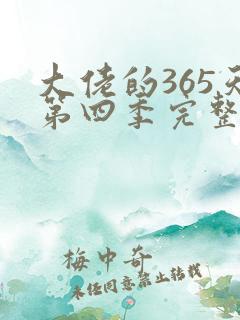 大佬的365天
第四季完整
梅中奇
未经同意禁止转载